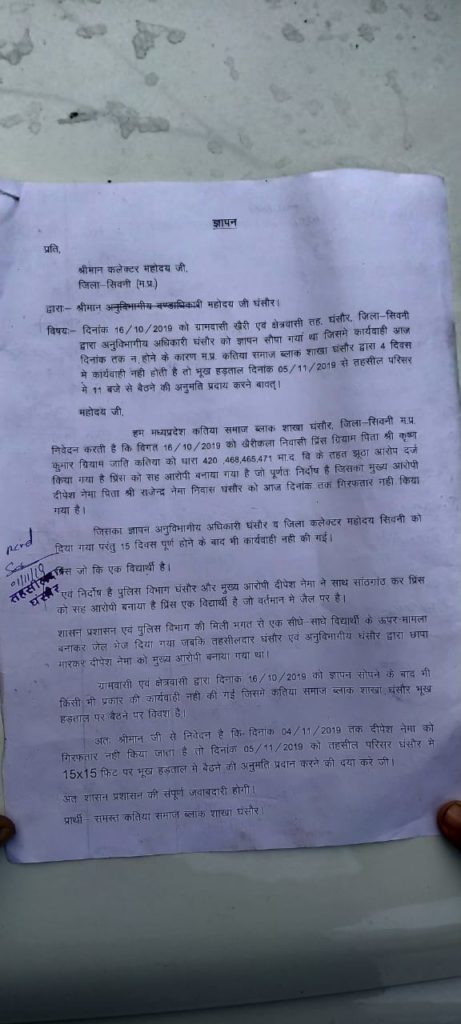 ज्ञापन
प्रति,
श्रीमान कलेक्टर महोदय जी,
जिला–सिवनी (म.प्र.)
द्वाराः– श्रीमान अनुविभागीय दण्डाधिकारी महोदय जी घंसौर।
विषयः– दिनांक 16/10/2019 को ग्रामवासी खैरी एवं क्षेत्रवासी तह. घंसौर, जिला–सिवनी
द्वारा अनुविभागीय अधिकारी घंसौर को ज्ञापन सौंपा गया था जिसमे कार्यवाही आज
दिनांक तक न होने के कारण म.प्र. कतिया समाज ब्लाक शाखा घंसौर द्वारा 4 दिवस
मे कार्यवाही नही होती है तो भूख हड़ताल दिनांक 05/11/2019 से तहसील परिसर
मे 11 बजे से बैठने की अनुमति प्रदाय करने बावत्।
महोदय जी,
हम मध्यप्रदेश कतिया समाज ब्लाक शाखा घंसौर, जिला–सिवनी म.प्र.
निवेदन करती है कि विगत 16/10/2019 को खैरीकला निवासी प्रिंस ग्रियाम पिता श्री कृष्ण
कुमार ग्रियाम जाति कतिया को धारा 420 ,468,465,471 भा.द. वि के तहत झूठा आरोप दर्ज
किया गया है प्रिंस को सह आरोपी बनाया गया है जो पूर्णतः निर्दोष है जिसका मुख्य आरोपी
दीपेश नेमा पिता श्री राजेन्द्र नेमा निवास घंसौर को आज दिनांक तक गिरफतार नही किया
गया है।
जिसका ज्ञापन अनुविभागीय अधिकारी घंसौर व जिला कलेक्टर महोदय सिवनी को
दिया गया परंतु 15 दिवस पूर्ण होने के बाद भी कार्यवाही नही की गई।
01/11/19
तहसीलदार
घंसौर
जो कि एक विद्यार्थी है।
एवं निर्दोष है पुलिस विभाग घंसौर और मुख्य आरोपी दीपेश नेमा ने साथ सांठगांठ कर प्रिंस
को सह आरोपी बनाया है प्रिंस एक विद्यार्थी है जो वर्तमान मे जेल पर है।
शासन प्रशासन एवं पुलिस विभाग की मिली भगत से एक सीधे साधे विद्यार्थी के ऊपर मामला
बनाकर जेल भेज दिया गया जबकि तहसीलदार घंसौर एवं अनुविभागीय घंसौर द्वारा छापा
मारकर दीपेश नेमा को मुख्य आरोपी बनाया गया था।
ग्रामवासी एवं क्षेत्रवासी द्वारा दिनांक 16/10/2019 को ज्ञापन सोपने के बाद भी
किसी भी प्रकार की कार्यवाही नही की गई जिसमे कतिया समाज ब्लाक शाखा घंसौर भूख
हड़ताल पर बैठने पर विवश है।
अतः श्रीमान जी से निवेदन है कि दिनांक 04/11/2019 तक दीपेश नेमा को
गिरफ्तार नही किया जाता है तो दिनांक 05/11/2019 को तहसील परिसर घंसौर मे
15x15 फिट पर भूख हड़ताल मे बैठने की अनुमति प्रदान करने की दया करे जी।
अतः शासन प्रशासन की संपूर्ण जवाबदारी होगी।
प्रार्थी – समस्त कतिया समाज ब्लाक शाखा घंसौर।